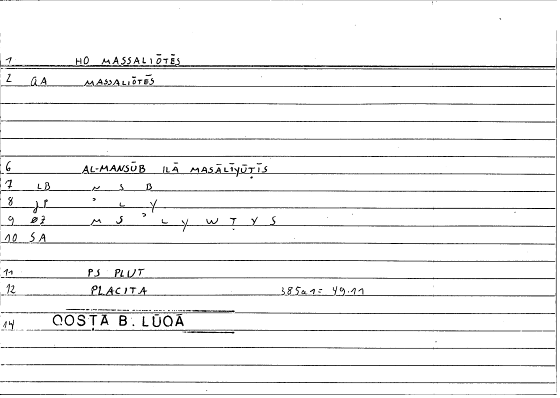 1 HO MASSALIŌTĒS
2 GA MASSALIŌTĒS
6 AL-MANSŪB ILĀ MASĀLĪYŪṬĪS
7 LB N S B
8 JP ʾ L Y
9 ØZ M S ʾ L Y W Ṭ Y S
10 SA
11 PS PLUT
12 PLACITA 385a1= 49.11
14 QOSṬĀ B. LŪQĀ